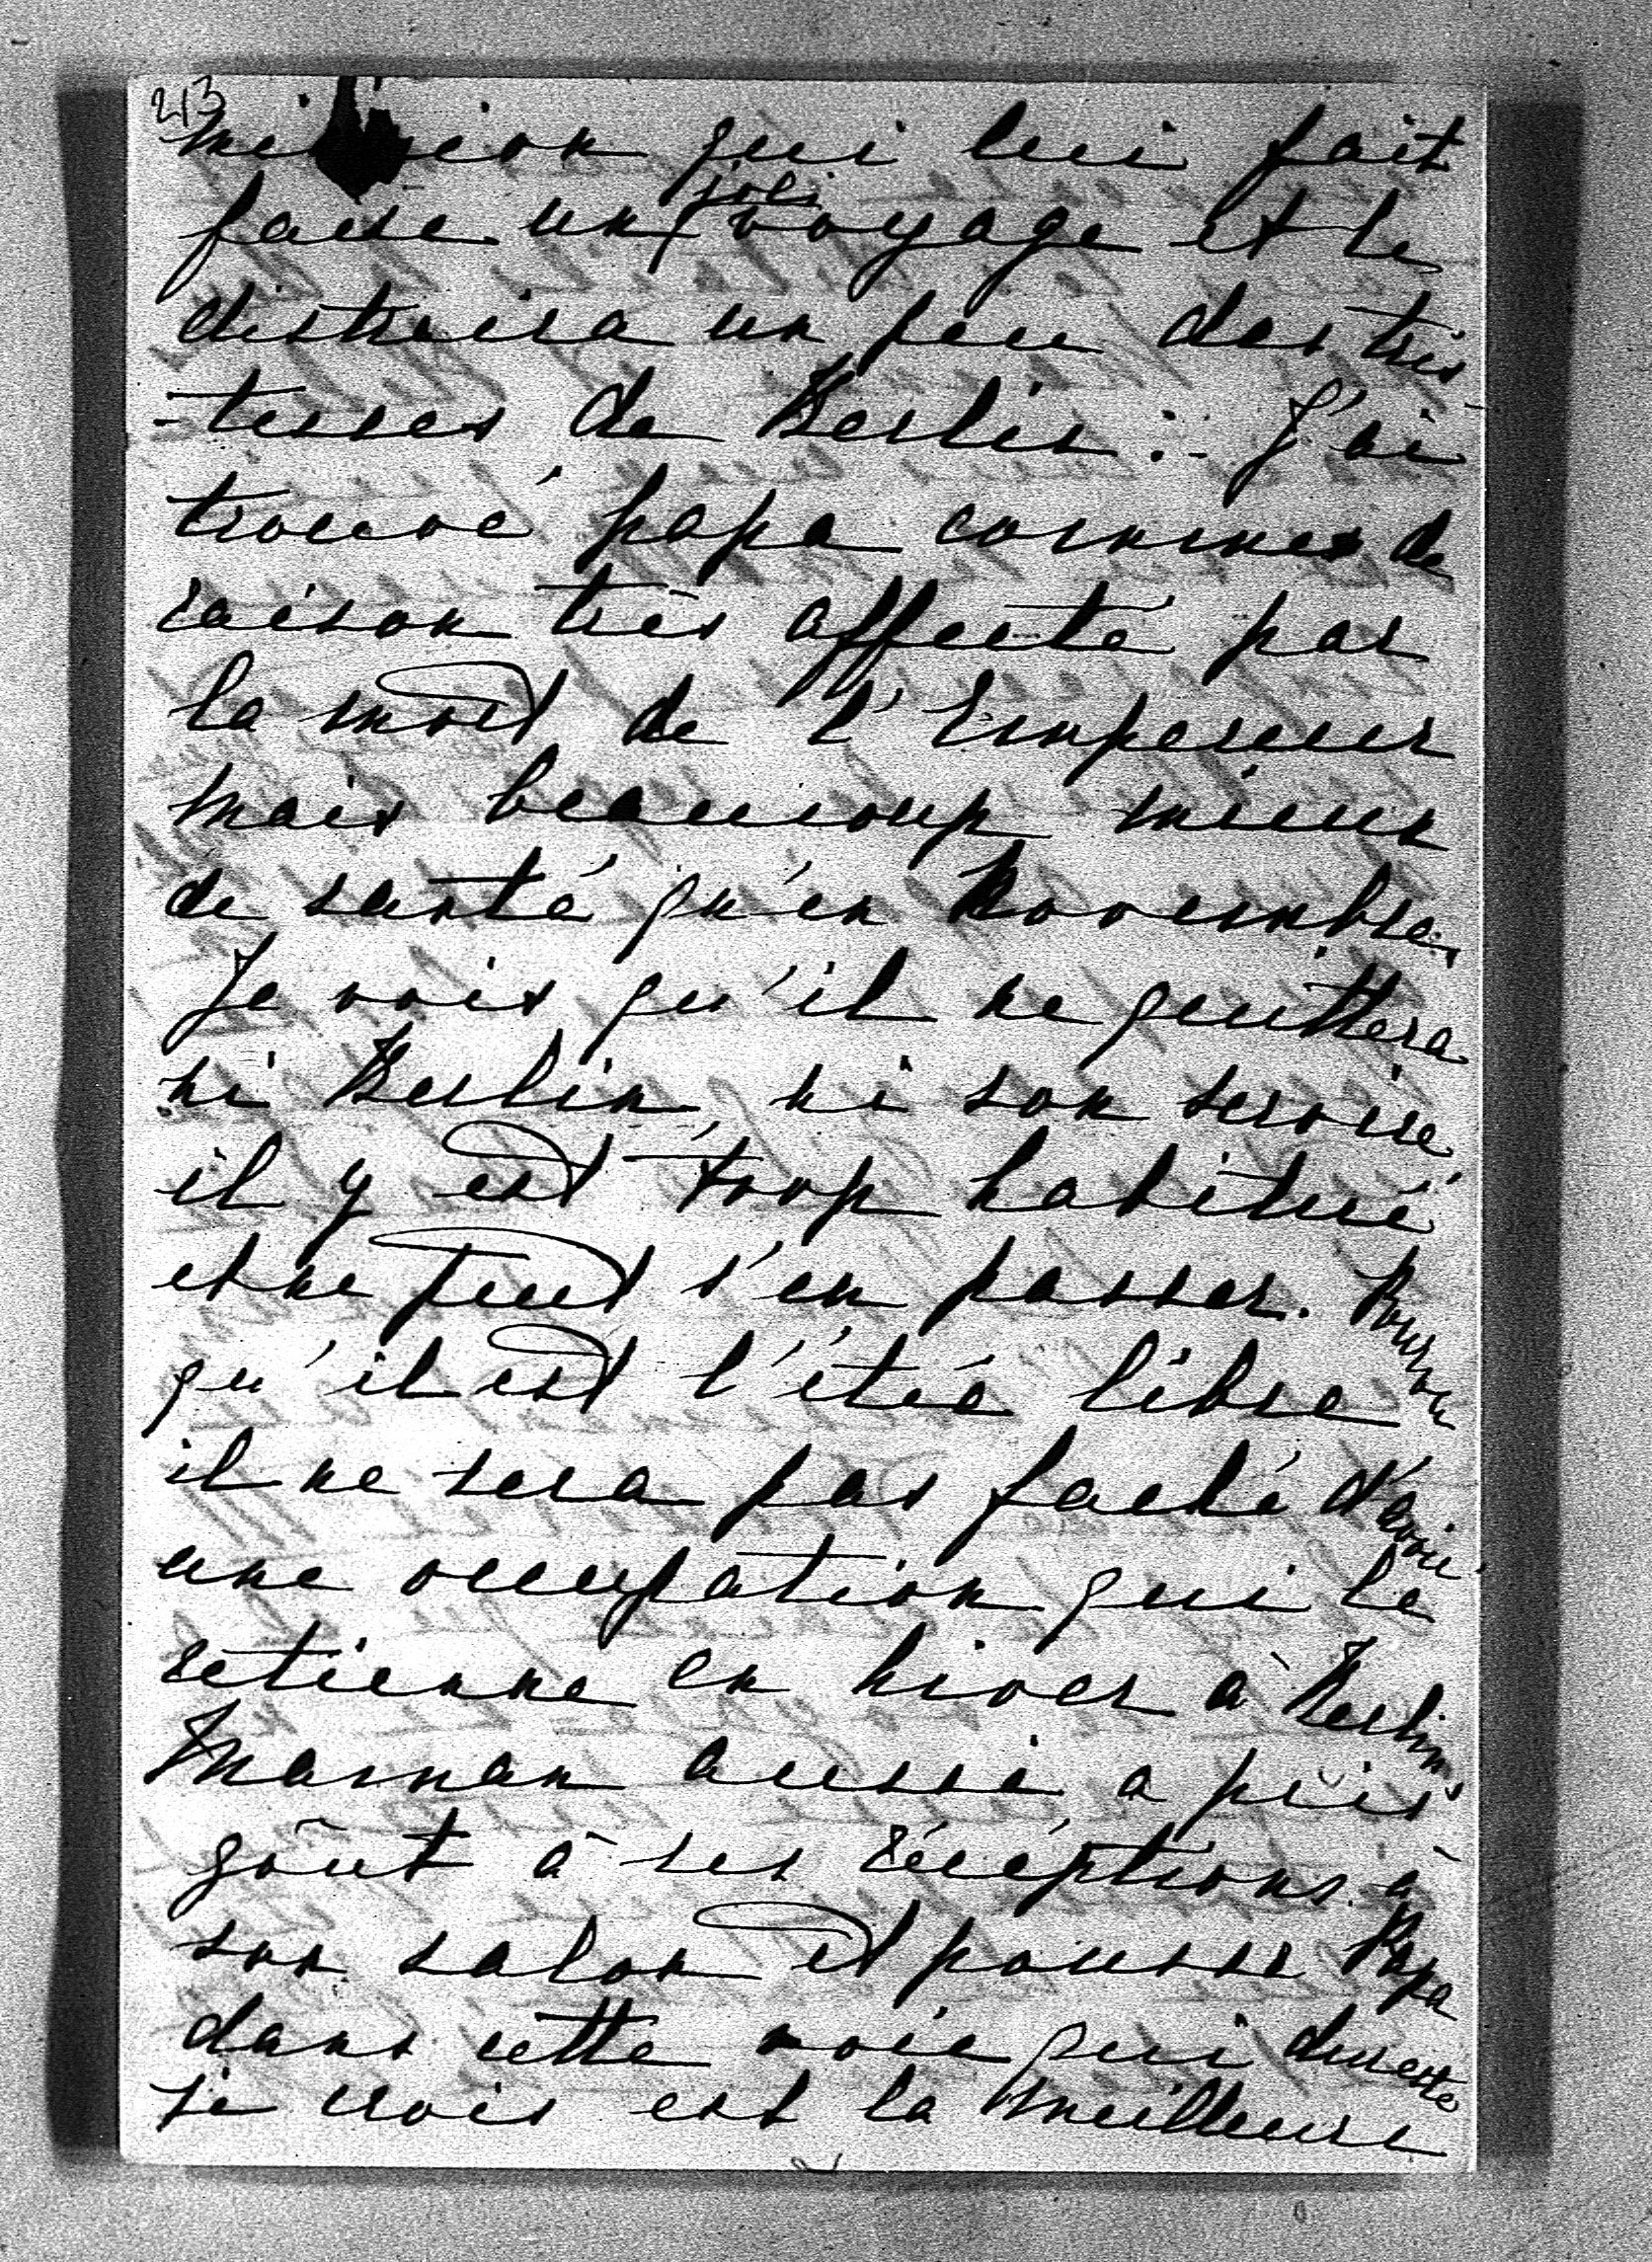 213
mission qui lui fait
joli
faire un voyage et le
distraira un peu des tris
-tesses de Berlin :- J'ai
trouvé papa comme de
raison très affecté par
la mort de l'Empereur
mais beaucoup mieux
de santé qu'en Novembre.
Je vois qu'il ne quittera
ni Berlin, ni son service,
il y est trop habitué
et ne peut s'en passer. Pourvu
qu'il est l'étéé libre
il ne sera pas faché d'avoir
une occupation qui le
retienne en hiver à Berlin
Maman aussi a pris
goût à ses réceptions à
son salon et pousse Papa
dans cette voie qui du reste
je crois est la meilleure